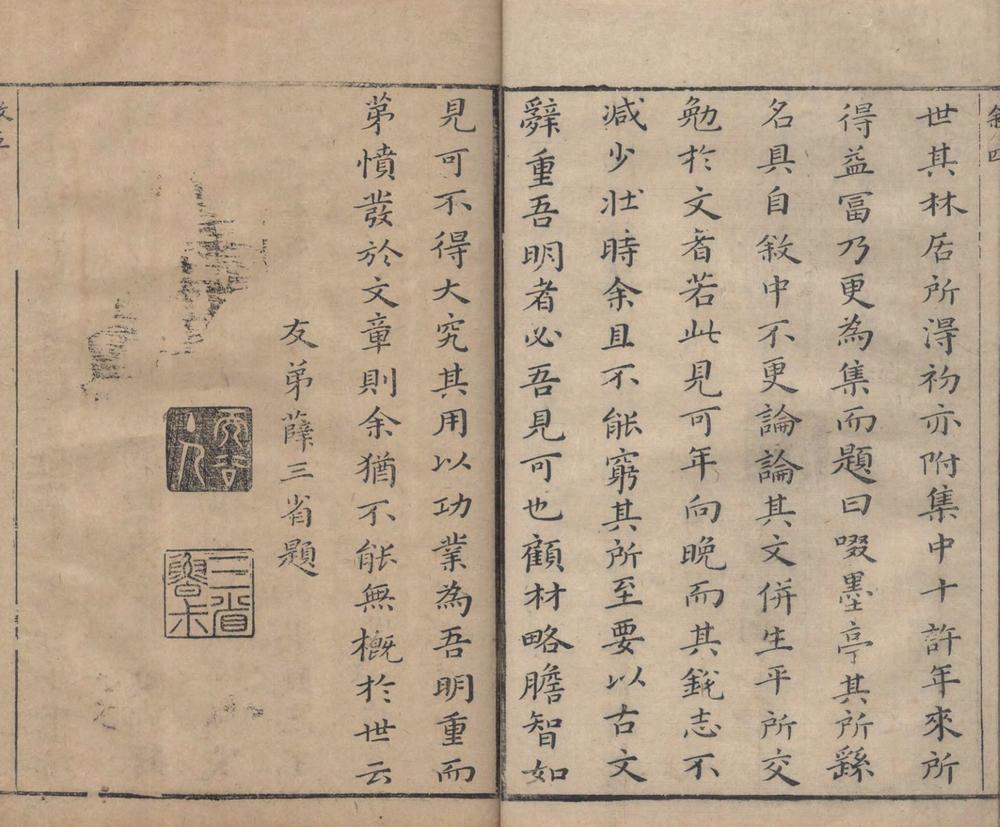 敘四
世其林居所淂初亦附集中十許年來所
得益冨乃更為集而題曰啜墨亭其所繇
名具自敘中不更論論其文併生平所交
勉於文者若此見可年向晩而其銳志不
減少壯時余且不能窮其所至要以古文
辭重吾明者必吾見可也顧材略膽智如
見可不得大究其用以功業為吾明重而
苐憤發於文章則余猶不能無槪於世云
友弟薛三省題
三省